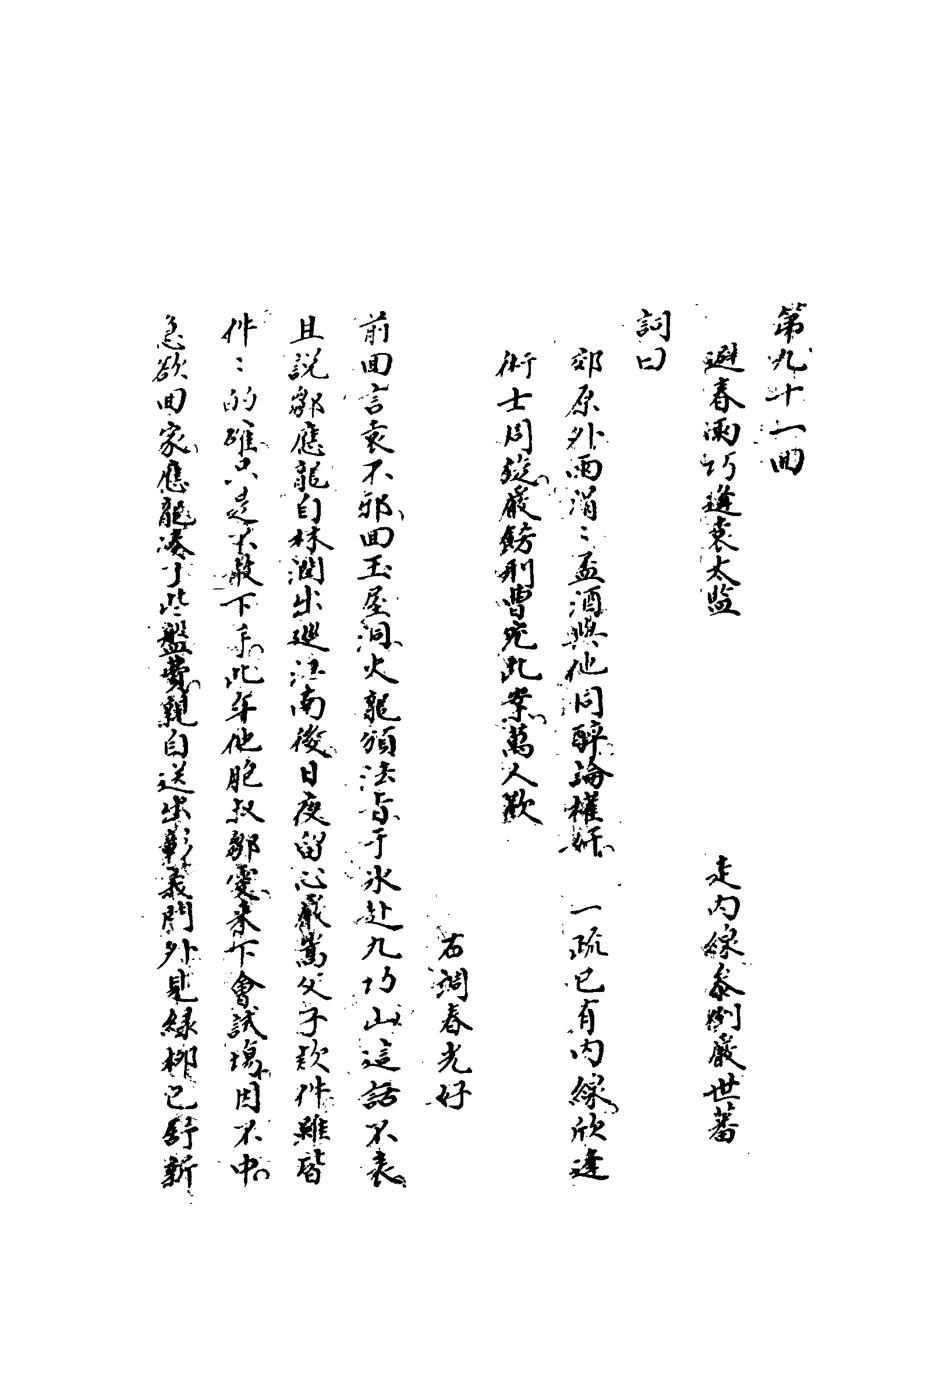 第九十一回
避春雨巧逢袁太監　走內線叅倒嚴世蕃
詞曰
郊原外雨涓〻盃酒與他同醉論權奸　一疏已有內線欣逢
術士同筵嚴鎊刑曹完此案萬人歡
右調春光好
前回言袁不邪回玉屋洞火龍頒法旨于氷赴九功山這話不表
且說鄒應龍自林潤出廵江南後日夜留心嚴嵩父子款件雖皆
件〻的確只是不敢下手此年他胞叔鄒雯來下會試塲因不中
急欲回家應龍湊了些盤費親自送出彰義門外見綠柳已舒新